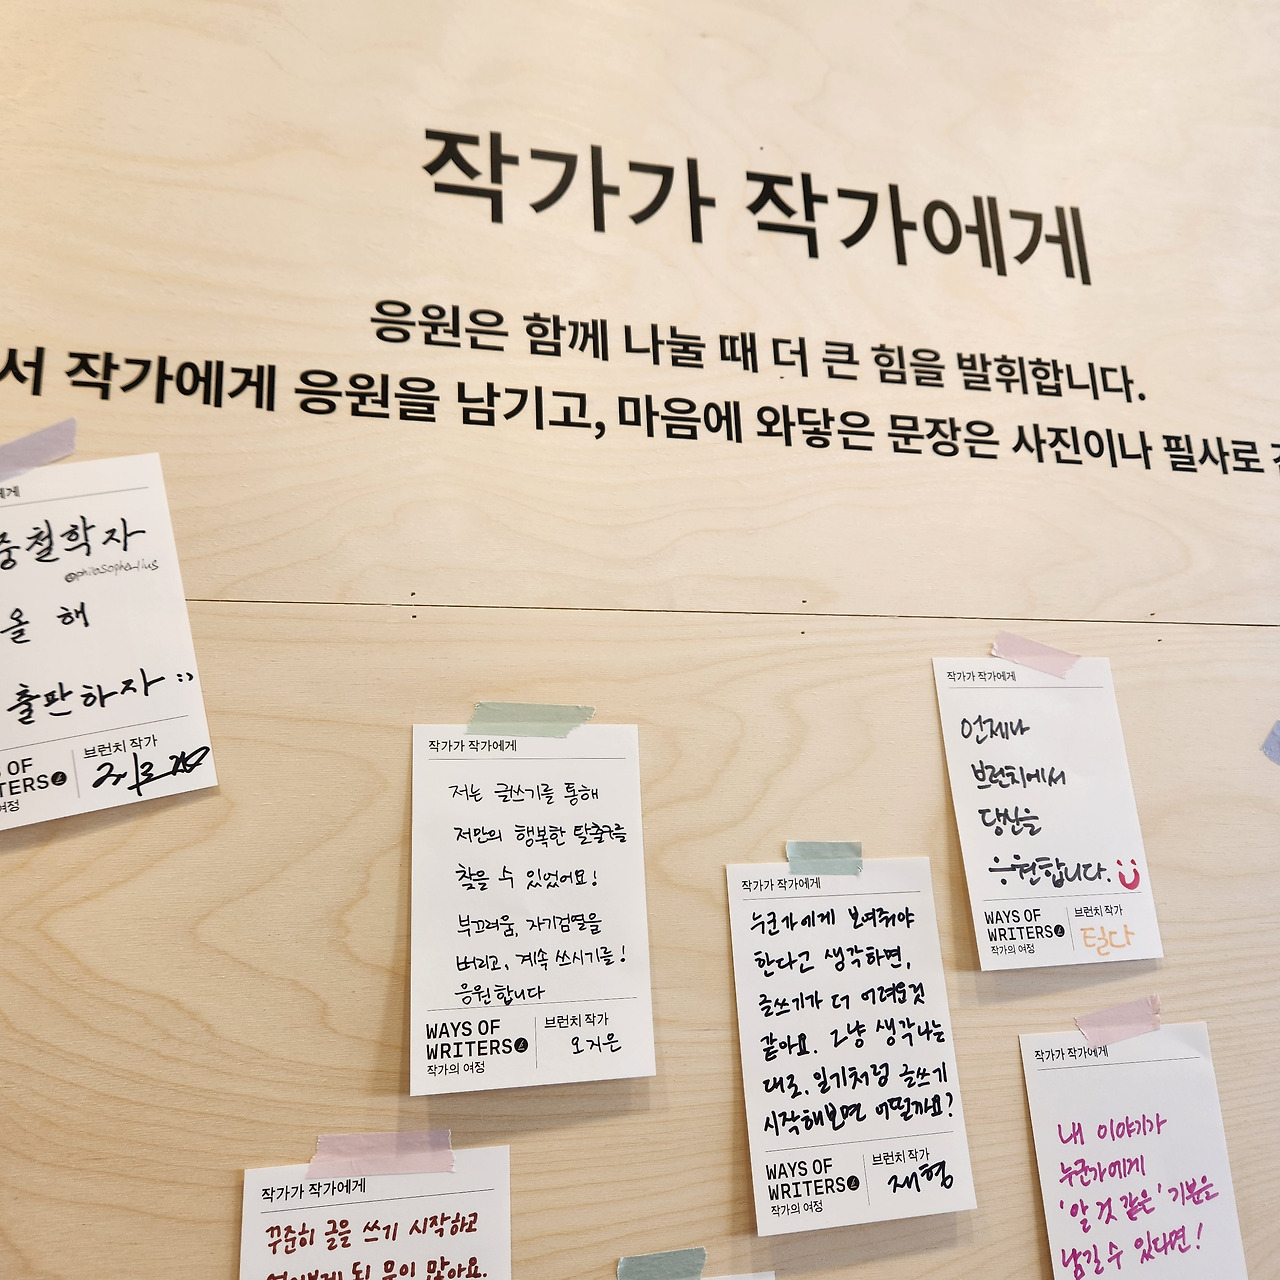 작가가 작가에게
응원은 함께 나눌 때 더 큰 힘을 발휘합니다.
서 작가에게 응원을 남기고, 마음에 와닿은 문장은 사진이나 필사로
에게
중철학자
올 해
출판하자 :)
OF
TERS
여정
브런치 작가
작가가 작가에게
저는 글쓰기를 통해
저만의 행복한 탈출구를
찾을 수 있었어요!
부끄러움, 자기검열을
버리고, 계속 쓰시기를!
응원합니다
WAYS OF
WRITERS
작가의 여정
브런치 작가
오지은
작가가 작가에게
누군가에게 보여줘야
한다고 생각하면,
글쓰기가 더 어려운것
같아요. 그냥 생각나는
대로, 일기처럼 글쓰기
시작해보면 어떨까요?
WAYS OF
WRITERS
작가의 여정
브런치 작가
재형
작가가 작가에게
언제나
브런치에서
당신을
응원합니다.
WAYS OF
WRITERS
작가의 여정
브런치 작가
털다
작가가 작가에게
꾸준히 글을 쓰기 시작하고
많아요.
작가가 작가에게
내 이야기가
누군가에게
'알 것 같은' 기분을
남길 수 있다면!